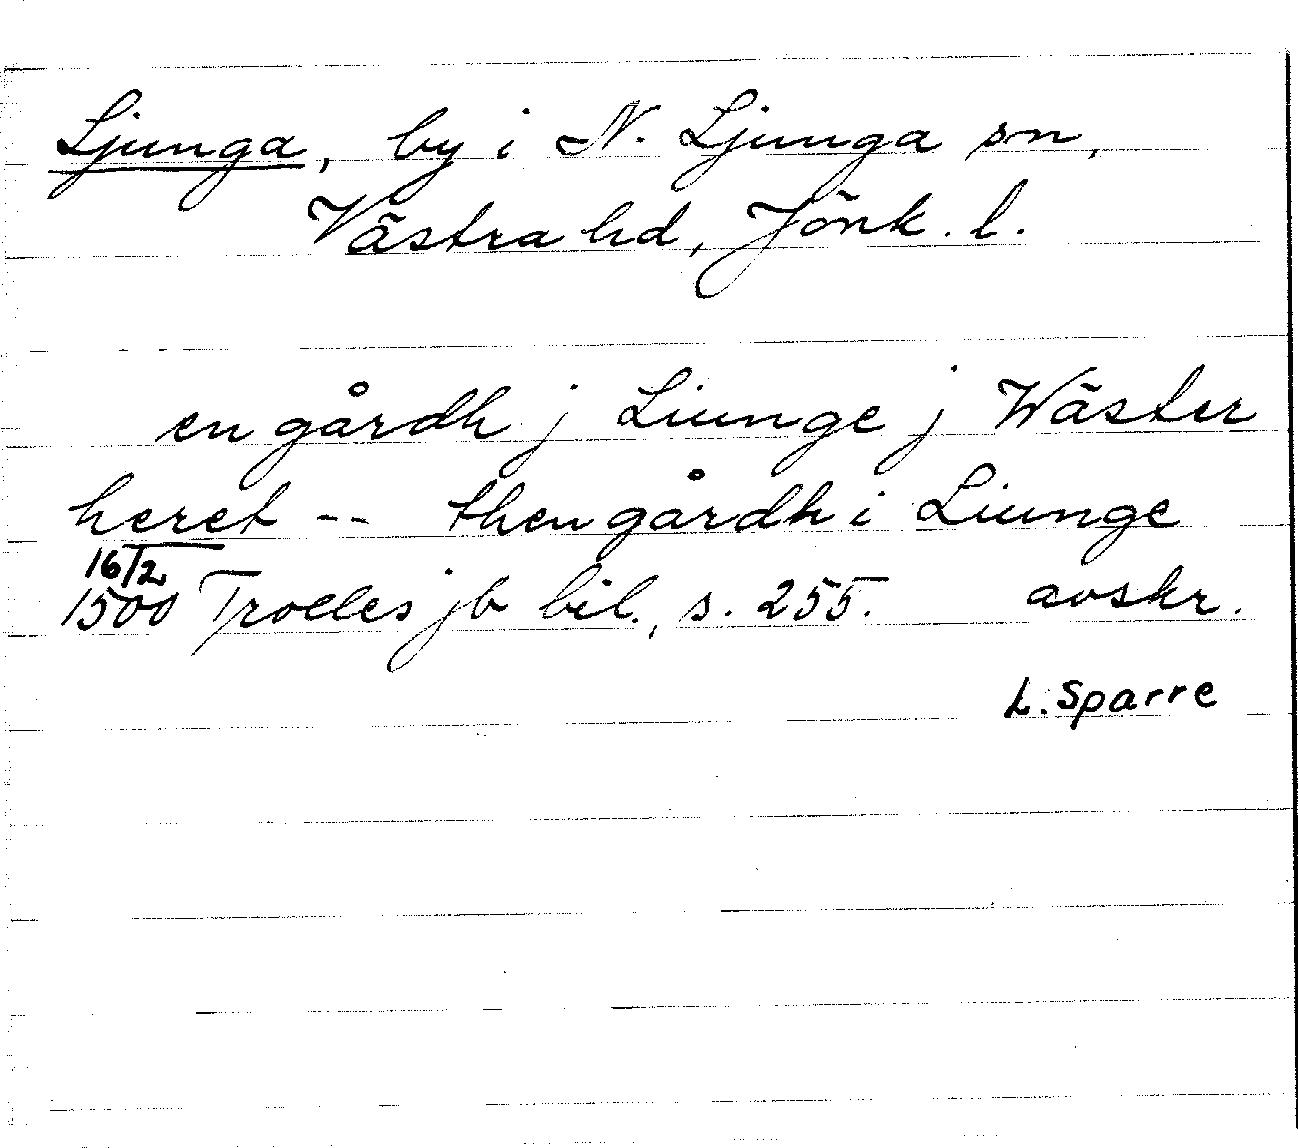 Ljunga, by i N. Ljunga sn,
Västra hd, Jönk. l.
en gårdh j Liunge j Wäster
heret -- then gårdh i Liunge
16/2
1500 Trolles jb bil., s. 255. avskr.
L. Sparre